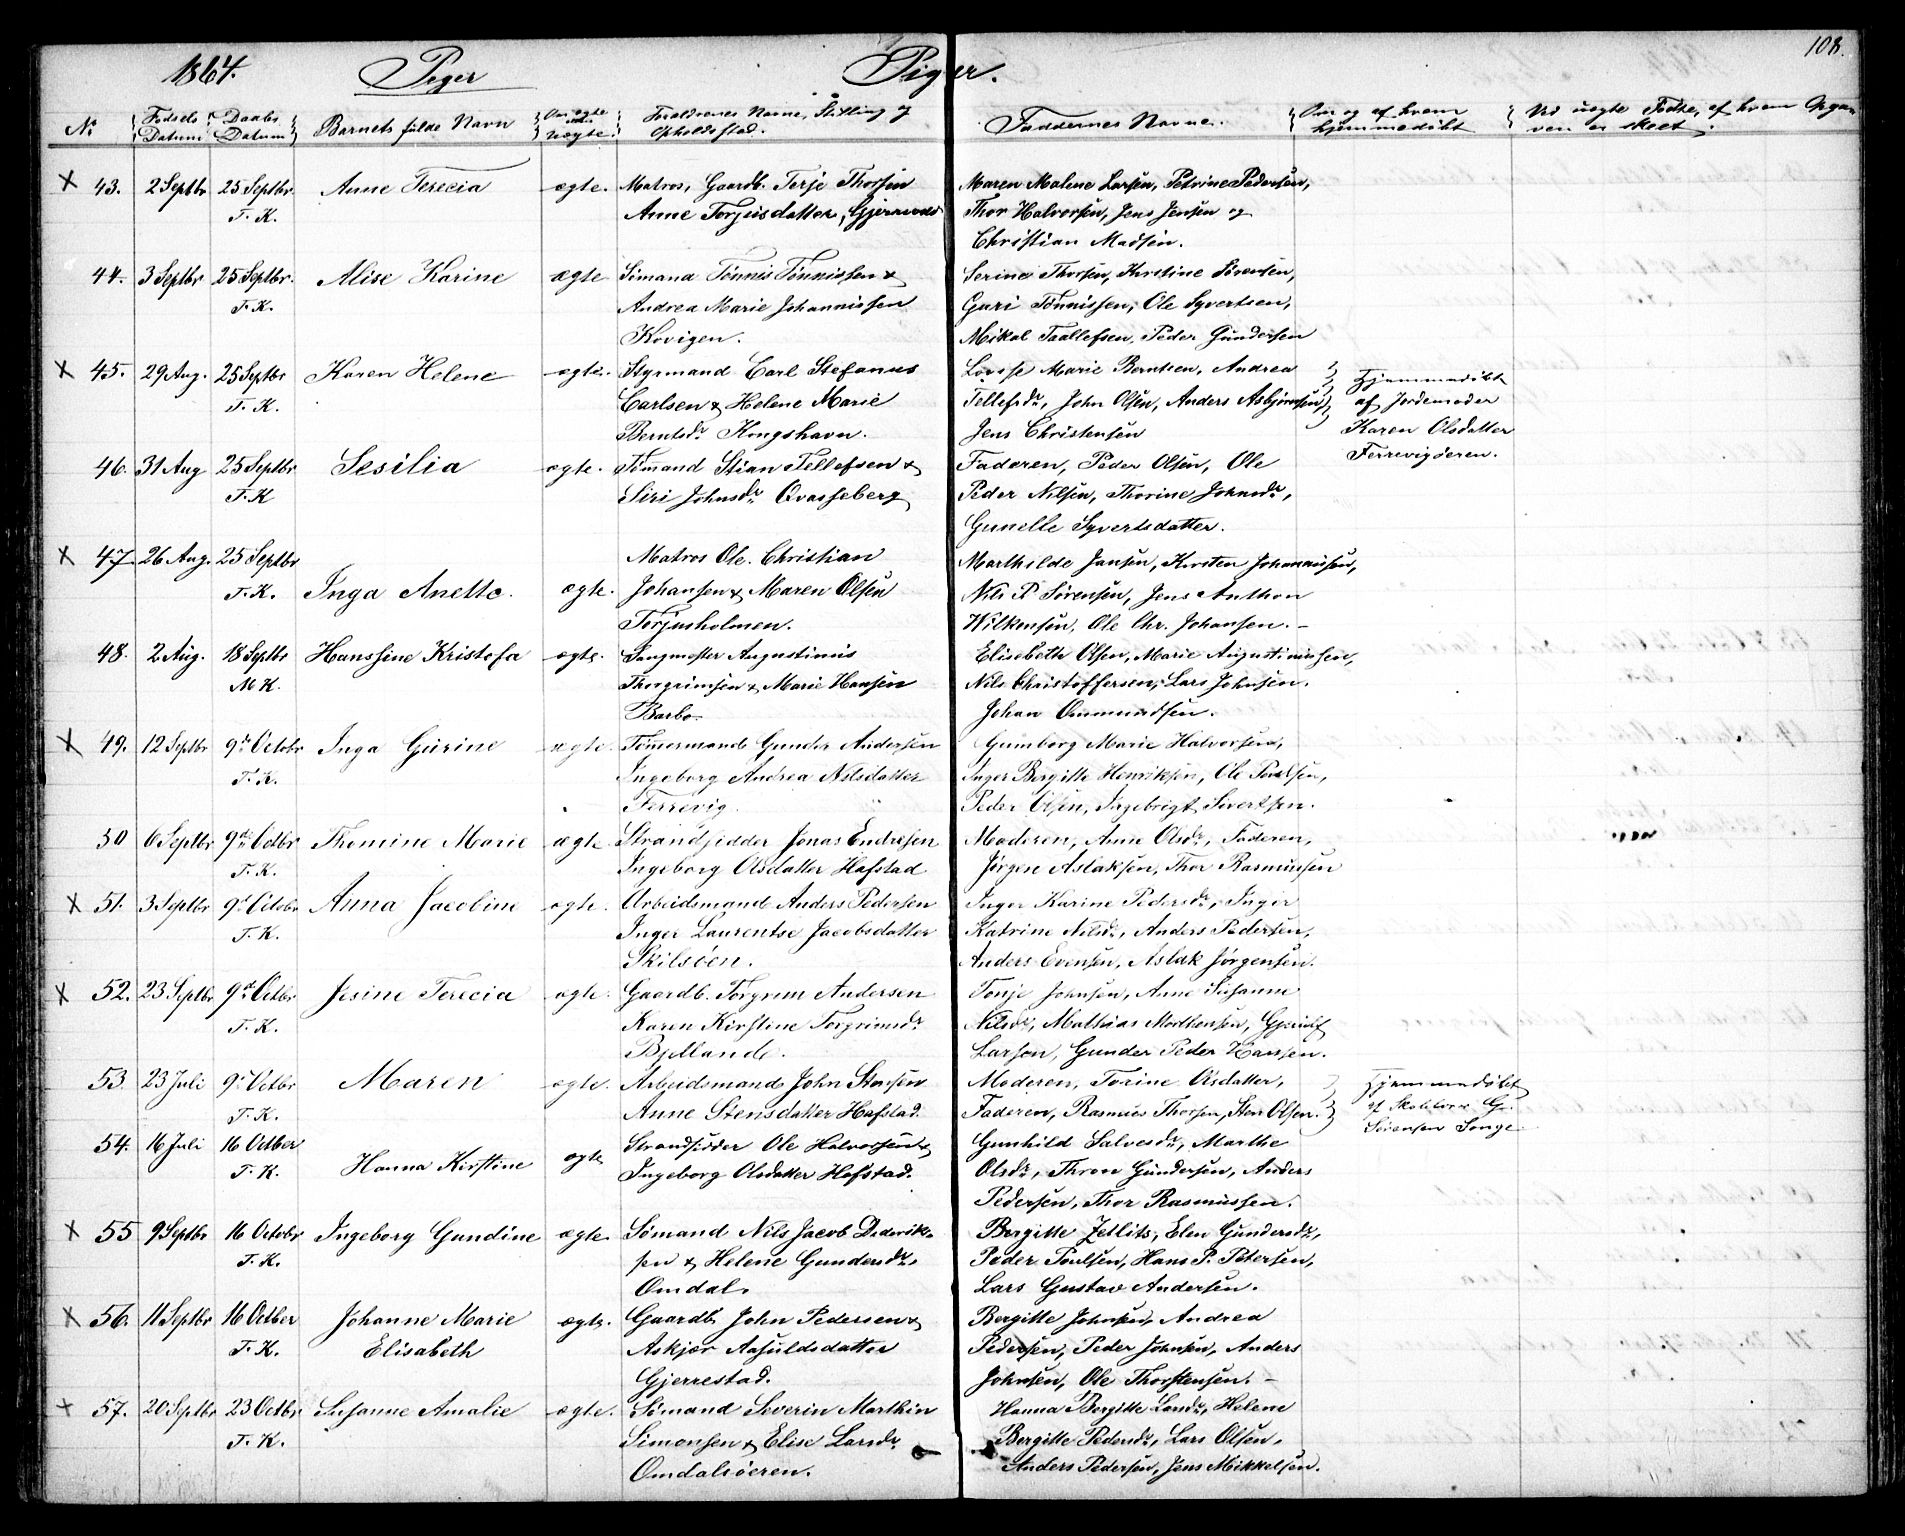 1864. Piger Piger. 108.
No Fødsels Datum Daabs Datum Barnets fulde Navn Om ægte eller uægte. Forældrenes Navne, Stilling og Opholdsstad. Faddernes Navne. Om og af hvem hjemmedøbt Ved uægte Fødte, af hvem Opgaven er skeet.
43. 2 Septbr 25 Septbr. Anne Terecia ægte. Matros, Gaardb. Terje Thorsen Maren Malene Larsen, Petrine Pedersen,
T. K. Anne Torjusdatter, Thor Halvorsen, Jens Jensen og
Christian Madsen.
44. 3 Septbr 25 Septbr. Alise Karine ægte Sømand Tønnis Tønnissen & Serine Thorsen, Kirstine Sørensen,
T. K. Andrea Marie Johannissen Guri Tønnissen, Ole Syvertsen,
Kovigen. Mikal Taallefsen, Peder Gundersen
45. 29 Aug. 25 Septbr Karen Helene ægte. Styrmand Carl Stefanus Lovise Marie Berntsen, Andrea Hjemmedøbt
T. K. Carlsen & Helene Marie Tellefsdr, John Olsen, Anders Asbjørnsen, af Jordemoder
Berntsdr Kongshavn. Jens Christensen Karen Olsdatter
Færevigøeren.
46. 31 Aug 25 Septbr Sesilia ægte. Sømand Stian Tellefsen & Faderen, Peder Olsen, Ole
T. K Siri Johnsdr Qvasseberg Peder Nilsen, Thorine Johnsdr,
Gunelle Syvertsdatter.
47. 26 Aug. 25 Septbr Matros Ole Christian Marthilde Jansen, Kirsten Johannisen,
T. K. Inga Anette. ægte. Johansen & Maren Olsen Nils P Sørensen, Jens Anthon
Torjusholmen. Wilhensen, Ole Chr. Johansen. -
48. 2 Aug. 18 Septbr Hanssine Kristofa ægte. Sangmester Augustinus Elisebeth Olsen, Marie Augustinusen,
M K. Thorgrimsen & Marie Hansen Nils Christoffersen, Lars Johnsen.
Barbo Johan Ommundsen.
49. 12 Septbr 9de Octobr Inga Gurine ægte. Tømmermand Gunder Andersen Gumborg Marie Halvorsen,
T. K. Ingeborg Andrea Nilsdatter Inger Bergitte Henriksen, Ole Paulsen,
Ferrevig. Peder Olsen, Ingebrigt Sivertsen.
50 6 Septbr 9de Octbr Thomine Marie ægte Strandsidder Jonas Endresen Moderen, Anne Olsdr, Faderen,
T. K. Ingeborg Olsdatter Hafstad Jørgen Aslaksen, Thor Rasmussen
51. 3 Septbr 9de Octobr Anna Jacobine ægte. Arbeidsmand Anders Pedersen Inger Karine Pedersdr, Inger
T. K. Inger Laurentse Jacobsdatter Katrine Nilsdr, Anders Pedersen,
Skilsøen. Anders Evensen, Aslak Jørgensen.
52. 23 Septbr 9de Octbr Jesine Terecia ægte. Gaardb. Torgrim Andersen Tonje Johnsen, Anne Susanne
T. K. Karen Kirstine Torgrimsdr Nilsdr, Mathias Morthensen,
Bjelland. Larsen, Gunder Peder Hansen.
53. 23 Juli 9de Octbr Maren ægte. Arbeidsmand John Stensen Moderen, Torine Olsdatter, Hjemmedøbt
T. K. Anne Stensdatter Hafstad. Faderen, Rasmus Thorsen, Sten Olsen. af Skolelærer G.
Sørensen Songe
54. 16 Juli 16 Octber Hanna Kirstine ægte Strandsidder Ole Halvorsen & Gunhild Salvesdr, Marthe
T. K. Ingeborg Olsdatter Hafstad. Olsdr, Thron Gundersen, Anders
Pedersen, Thor Rasmussen.
55 9 Septbr 16 Octobr Ingeborg Gundine ægte Sømand Nils Jacob Didrik- Bergitte Zetlits, Elen Gundersdr,
T. K. sen & Helene Gundersdr. Peder Poulsen, Hans P. Petersen,
Omdal. Lars Gustav Andersen.
56. 11 Septbr 16 Octber Johanne Marie ægte. Gaardb. John Pedersen & Bergitte Johnsen, Andrea
T. K. Elisabeth Askjær Aasuldsdatter Pedersen, Peder Johnsen, Anders
Gjerrestad. Johnsen, Ole Thorstensen. -
57. 20 Septbr 23 Octbr Susanne Amalie ægte. Sømand Severin Marthin Hanna Bergitte Larsdr, Helene
T. K. Simonsen & Elise Larsdr Bergitte Pedersdr, Lars Olsen,
Omdalsøeren. Anders Pedersen, Jens Mikkelsen.